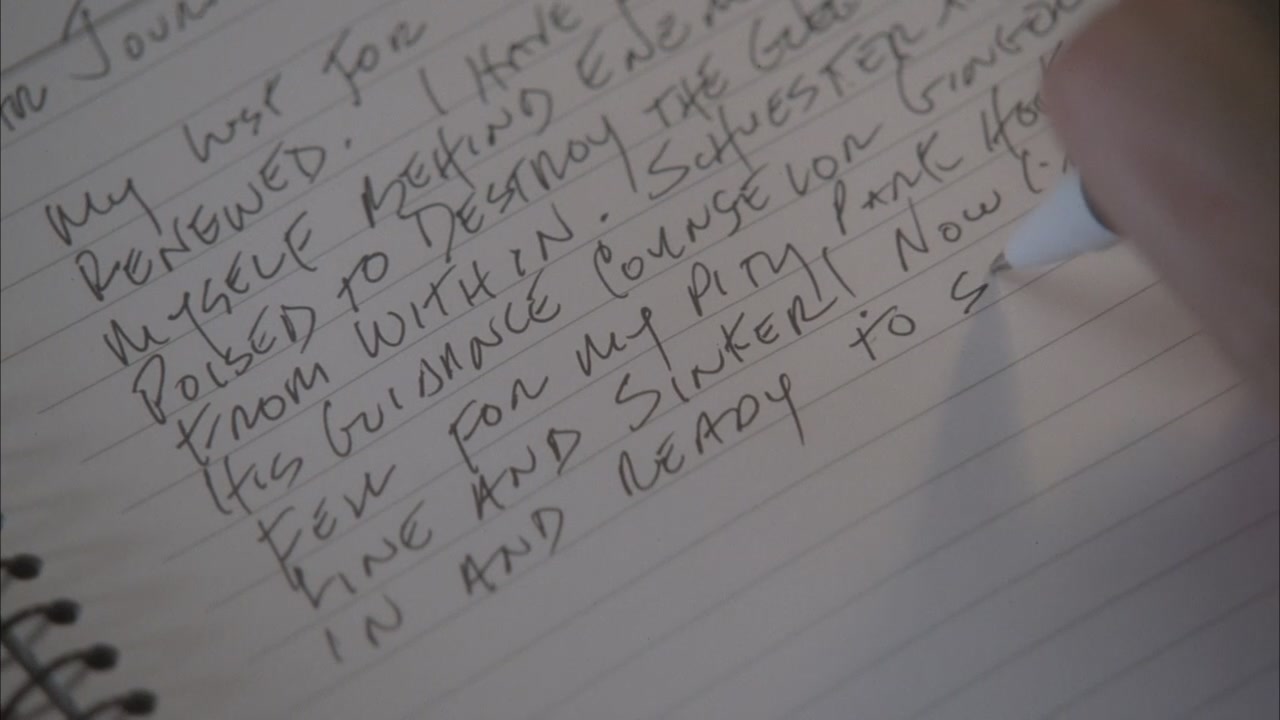 Journ
My lust for
RENEWED. I HAVE
MYSELF BEHIND ENEM
POISED TO DESTROY THE GLEE
FROM WITHIN. SCHUESTER
HIS GUIDANCE COUNSELOR GINGER
FELL FOR MY PITY PARK HO
LINE AND SINKER! NOW I'
IN AND READY TO S